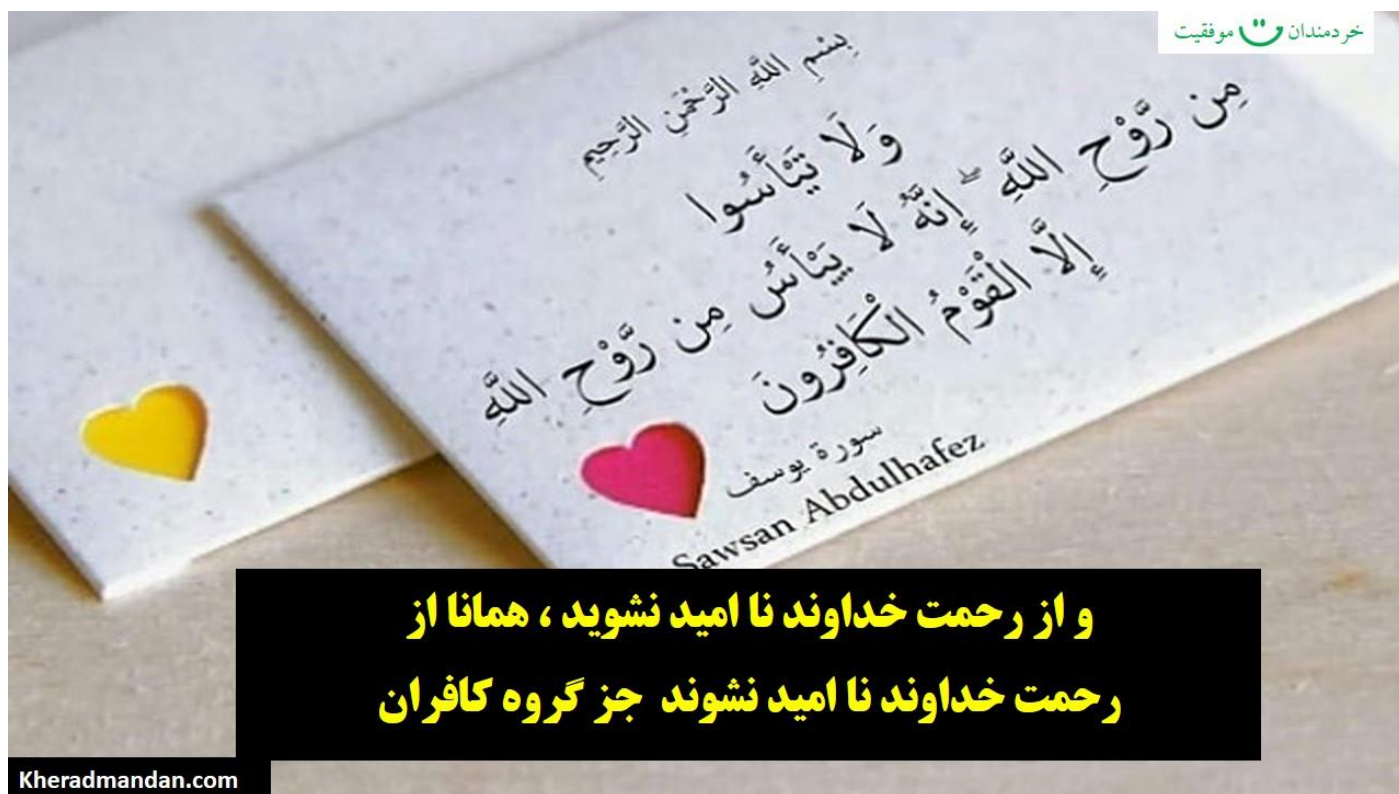 خردمندان موفقیت
بِسْمِ اللَّهِ الرَّحْمَنِ الرَّحِيمِ
وَلَا تَيْأَسُوا
مِن رَّوْحِ اللَّهِ ۖ إِنَّهُ لَا يَيْأَسُ مِن رَّوْحِ اللَّهِ
إِلَّا الْقَوْمُ الْكَافِرُونَ
سورة يوسف
Sawsan Abdulhafez
و از رحمت خداوند نا امید نشوید ، همانا از
رحمت خداوند نا امید نشوند جز گروه کافران
Kheradmandan.com